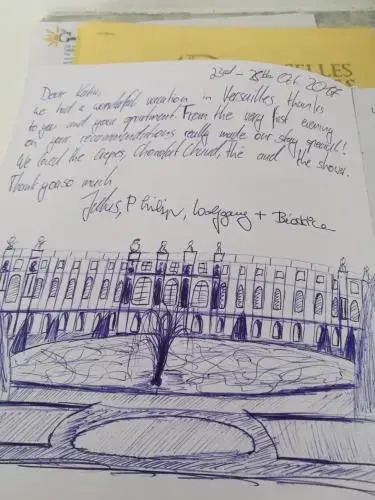 23rd - 28th Oct 2018
Dear Katia,
we had a wonderful vacation in Versailles, thanks
to you and your apartment. From the very first evening
on your recommendations really made our stay special!
We loved the Crepes, Chocolat Chaud, the and the shows.
Thank you so much
Julius, Philipp, Wolfgang + Beatrice